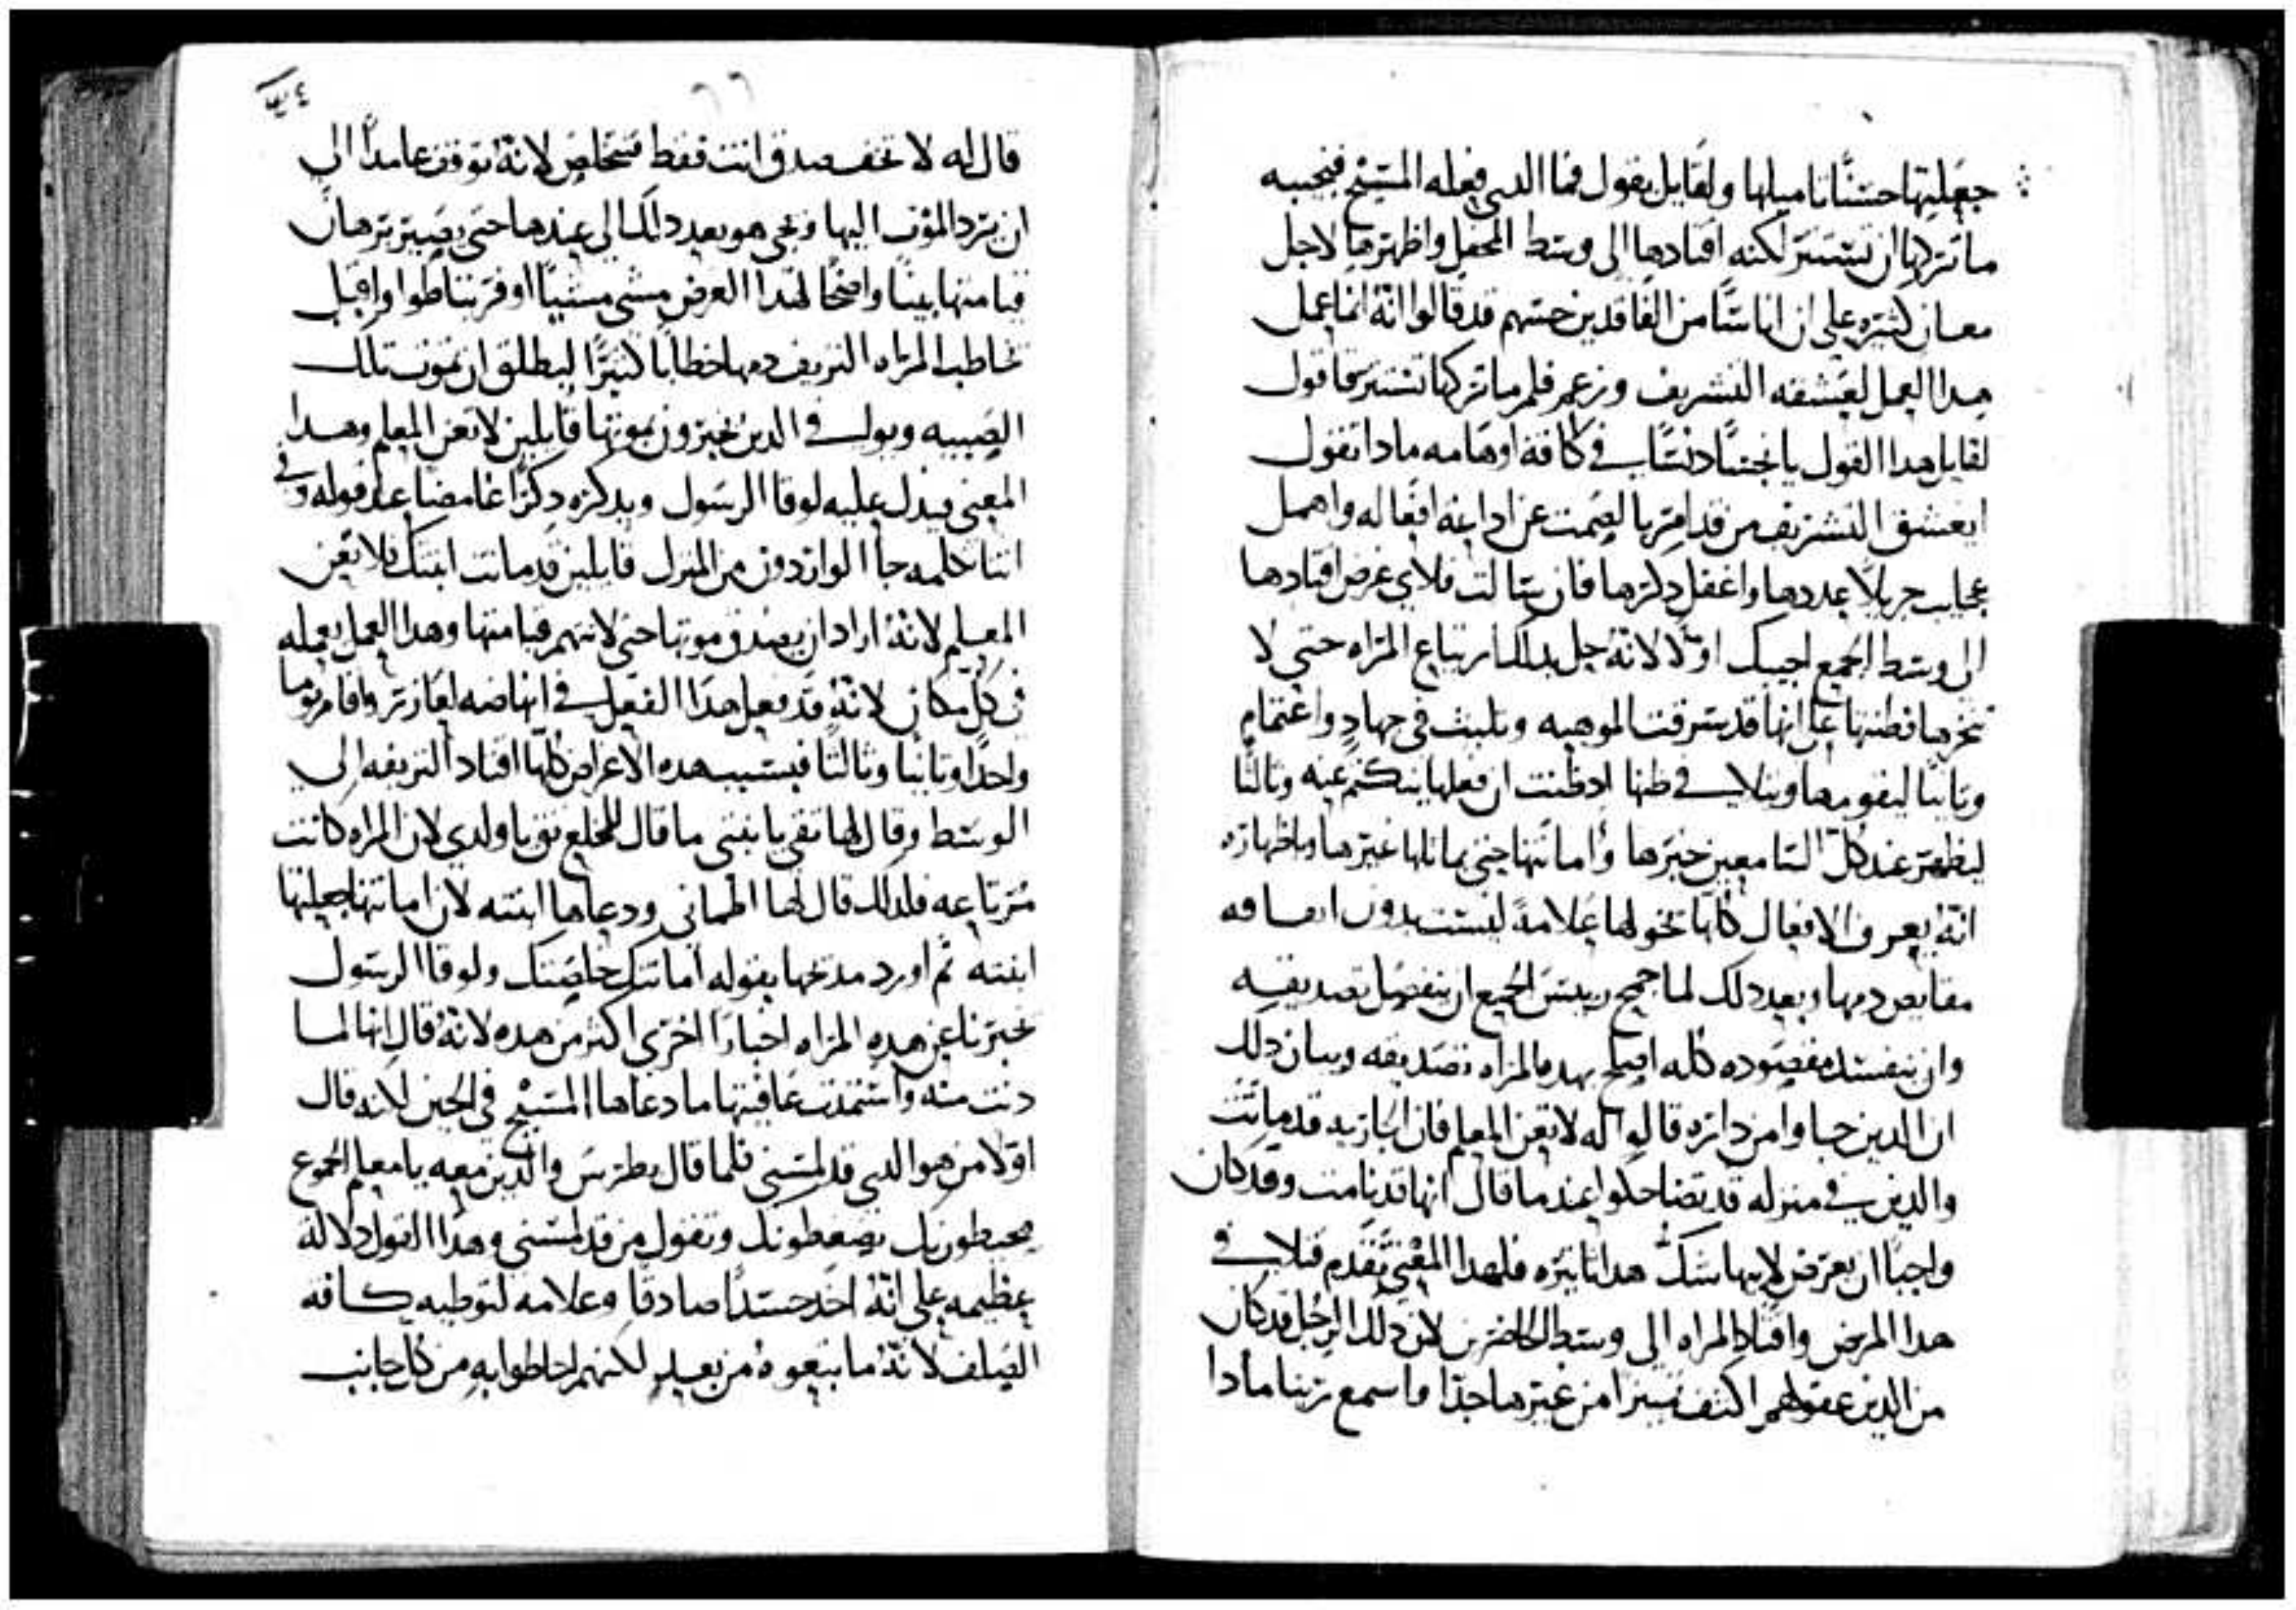 جعليتها حسنًا ناميلها ولقايل يقول فما الدى فعله المسيح فنجيبه
ما تركها ان تستتر لكنه اقتادها الى وسط المحفل واظهرها لاجل
معان كثيره على ان اناسًا من الفاقدين حسهم قد قالوا انه انما عمل
هدا العمل لعشقه التشريف وزعم فلم ما تركها تستتر فاقول
لقايل هدا القول يا نجسًا دنسًا في كافة اوهامه مادا تقول
ايعشق التشريف من قد امر بالصمت عن اداعة افعاله واهمل
عجايب جزيلًا عددها واغفل دكرها فان سالت فلاي غرض اقتادها
الى وسط الجمع اجيبك اولًا لانه حل بدلك ارتياع المراه حتى لا
تنخرها فطنتها على انها قد سرقت الموهبه وتلبث في جهادٍ واغتمام
وتانيا ليقومها ويتلافى ظنها اد ظنت ان فعلها ينكتم عنه وتالتًا
ليظهر عند كل السامعين خبرها وامانتها حتى يماتلها غيرها وباظهاره
انه يعرف الافعال كلها تخولها علامة ليست بدون ايقافه
مفايض دمها وبعد دلك لما جمح رييس الجمع ان ينفصل تصديقه
وان ينفسد مقصوده كله اصلح بهده المراه تصديقه وبيان دلك
ان الدين جاوا من داره قالوا له لا تعن المعلم فان الجاريه قد ماتت
والدين في منزله قد تضاحكوا عند ما قال انها قد نامت وقد كان
واجبا ان يعرض لابيها شك هدا تاتيره فلهدا المعنى تقدم فتلافى
هدا المرض واقتاد المراه الى وسط الحاضرين لان دلك الرجل قد كان
من الدين عقولهم اكتف تميزا من غيرها جدًا فاسمع ربنا مادا
قال له لا تخف صدق انت فقط فتخلص لانه توقف عامدًا الى
ان ترد الموت اليها ونجي هو بعد دلك الى عندها حتى يصير برهان
قيامتها بينًا واضحًا لهدا الغرض مشى مشيًا اوفر تباطوا واقبل
تخاطب المراه النزيف دمها خطابا كثيرًا ليطلق ان تموت تلك
الصبيه ويوافى الدين يخبرون بموتها قايلين لا تعن المعلم وهدا
المعنى فيدل عليه لوقا الرسول ويدكره دكرًا غامضا عند قوله وفي
اتنا تكلمه جا الواردون من المنزل قايلين قد ماتت ابنتك فلا تعن
المعلم لانه اراد ان يصدق موتها حتى لا تتهم قيامتها وهدا العمل يعمله
في كل مكان لانه قد فعل هدا الفعل في انهاضه لعازر واقام يوما
واحدًا وتانيا وتالتًا فبسبب هده الاعراض كلها اقتاد النزيفه الى
الوسط وقال لها تقي يا بنتي ما قال للمخلع تق يا ولدي لان المراه كانت
مرتاعه فلدلك قال لها اطماني ودعاها ابنته لان امانتها جعلتها
ابنته تم اورد مدتحها بقوله امانتك خلصتك ولوقا الرسول
يخبرنا عن هده المراه اخبارًا اخرى اكتر من هده لانه قال انها لما
دنت منه واستمدت عافيتها ما دعاها المسيح في الحين لانه قال
اولًا من هو الدى قد لمسني فلما قال بطرس والدين معه يا معلم الجموع
يحيطون بك يضغطونك وتقول من قد لمسني وهدا القول دلالة
عظيمه على انه اخد جسدًا صادقا وعلامه لتوطيه كافه
الصلف لانه ما تبعوه من بعيد لكنهم احاطوا به من كل جانب